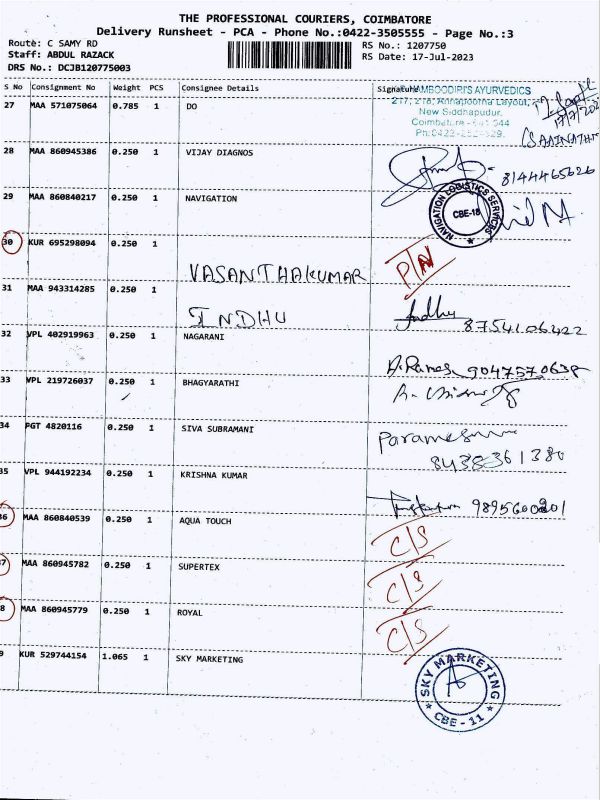 THE PROFESSIONAL COURIERS, COIMBATORE
Delivery Runsheet - PCA - Phone No.:0422-3505555 - Page No.:3
Route: C SAMY RD
RS No.: 1207750
Staff: ABDUL RAZACK
RS Date: 17-Jul-2023
DRS No.: DCJB120775003
S No Consignment No Weight PCS Consignee Details Signature
NAMBOODIRI'S AYURVEDICS
217, 218, Annapoorna Layout,
New Siddhapudur,
Coimbatore - 641 044
Ph:0422-
27 MAA 571075064 0.785 1 DO
(SAAINATH
28 MAA 860945386 0.250 1 VIJAY DIAGNOS
8144465626
29 MAA 860840217 0.250 1 NAVIGATION
NAVIGATION LOGISTICS SERVICES
CBE-18
30 KUR 695298094 0.250 1
VASANTHAKUMAR
P/N
31 MAA 943314285 0.250 1
INDHU
Indhu 8754106422
32 VPL 402919963 0.250 1 NAGARANI
A.Ramesh 9047570638
33 VPL 219726037 0.250 1 BHAGYARATHI
34 PGT 4820116 0.250 1 SIVA SUBRAMANI
8438361380
35 VPL 944192234 0.250 1 KRISHNA KUMAR
9895600201
36 MAA 860840539 0.250 1 AQUA TOUCH
C/S
37 MAA 860945782 0.250 1 SUPERTEX
C/S
38 MAA 860945779 0.250 1 ROYAL
C/S
9 KUR 529744154 1.065 1 SKY MARKETING
SKY MARKETING
CBE - 11